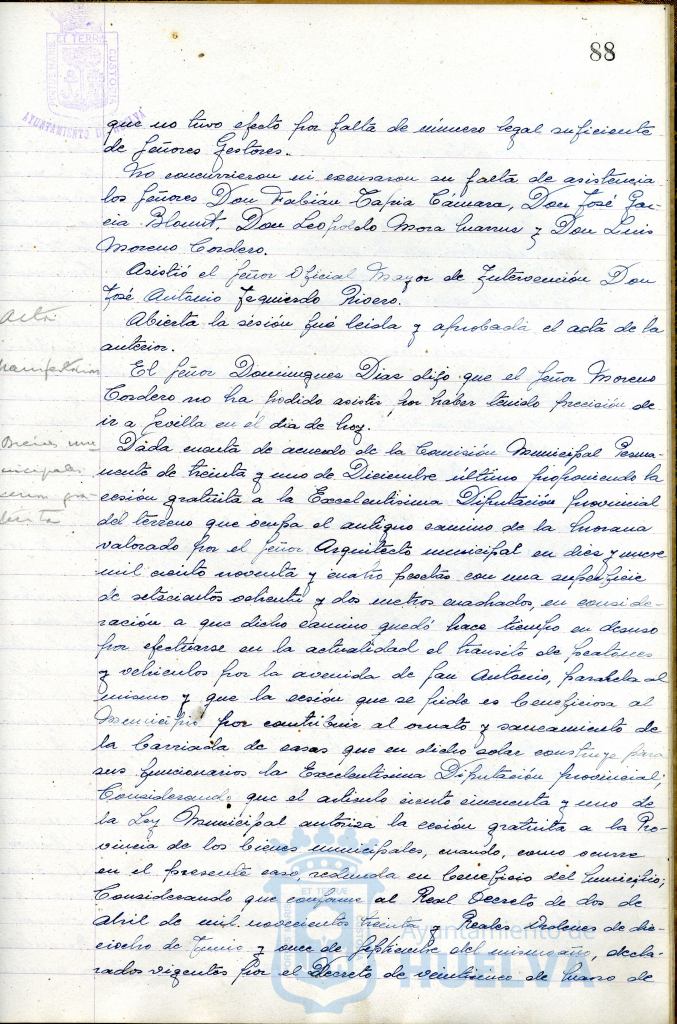 88
PORTUS MARIS ET TERRAE CUSTODIA
AYUNTAMIENTO DE HUELVA
que no tuvo efecto por falta de número legal suficiente
de Señores Gestores.
No concurrieron ni excusaron su falta de asistencia
los Señores Don Fabián Tapia Cámara, Don José Gar-
cia Blount, Don Leopoldo Mora y Don Luis
Moreno Cordero.
Asistió el Señor Oficial Mayor de Intervención Don
José Antonio Izquierdo Rivero.
Acta
Abierta la sesión fué leida y aprobada el acta de la
anterior.
El Señor Domínguez Dias dijo que el Señor Moreno
Cordero no ha podido asistir por haber tenido precisión de
ir a Sevilla en el dia de hoy.
Bienes mu-
nicipales
cesión gra-
tuita
Dada cuenta de acuerdo de la Comisión Municipal Perma-
nente de treinta y uno de Diciembre último proponiendo la
cesión gratuita a la Excelentísima Diputación provincial
del terreno que ocupa el antiguo camino de la
valorado por el Señor Arquitecto municipal en diez y nueve
mil ciento noventa y cuatro pesetas con una superficie
de setecientos ochenta y dos metros cuadrados, en conside-
ración a que dicho camino quedó hace tiempo en desuso
por efectuarse en la actualidad el tránsito de peatones
y vehículos por la avenida de San Antonio, paralela al
mismo y que la cesión que se pide es beneficiosa al
Municipio por contribuir al ornato y saneamiento de
la barriada de casas que en dicho solar construye para
sus funcionarios la Excelentísima Diputación provincial;
Considerando que el artículo ciento cincuenta y uno de
la Ley Municipal autoriza la cesión gratuita a la Pro-
vincia de los bienes municipales, cuando, como ocurre
en el presente caso, redunda en beneficio del Municipio;
Considerando que conforme al Real Decreto de dos de
abril de mil novecientos treinta y Reales Ordenes de die-
ciocho de Junio y once de Septiembre del mismo año, decla-
rados vigentes por el Decreto de veinticinco de Marzo de
Ayuntamiento de
HUELVA